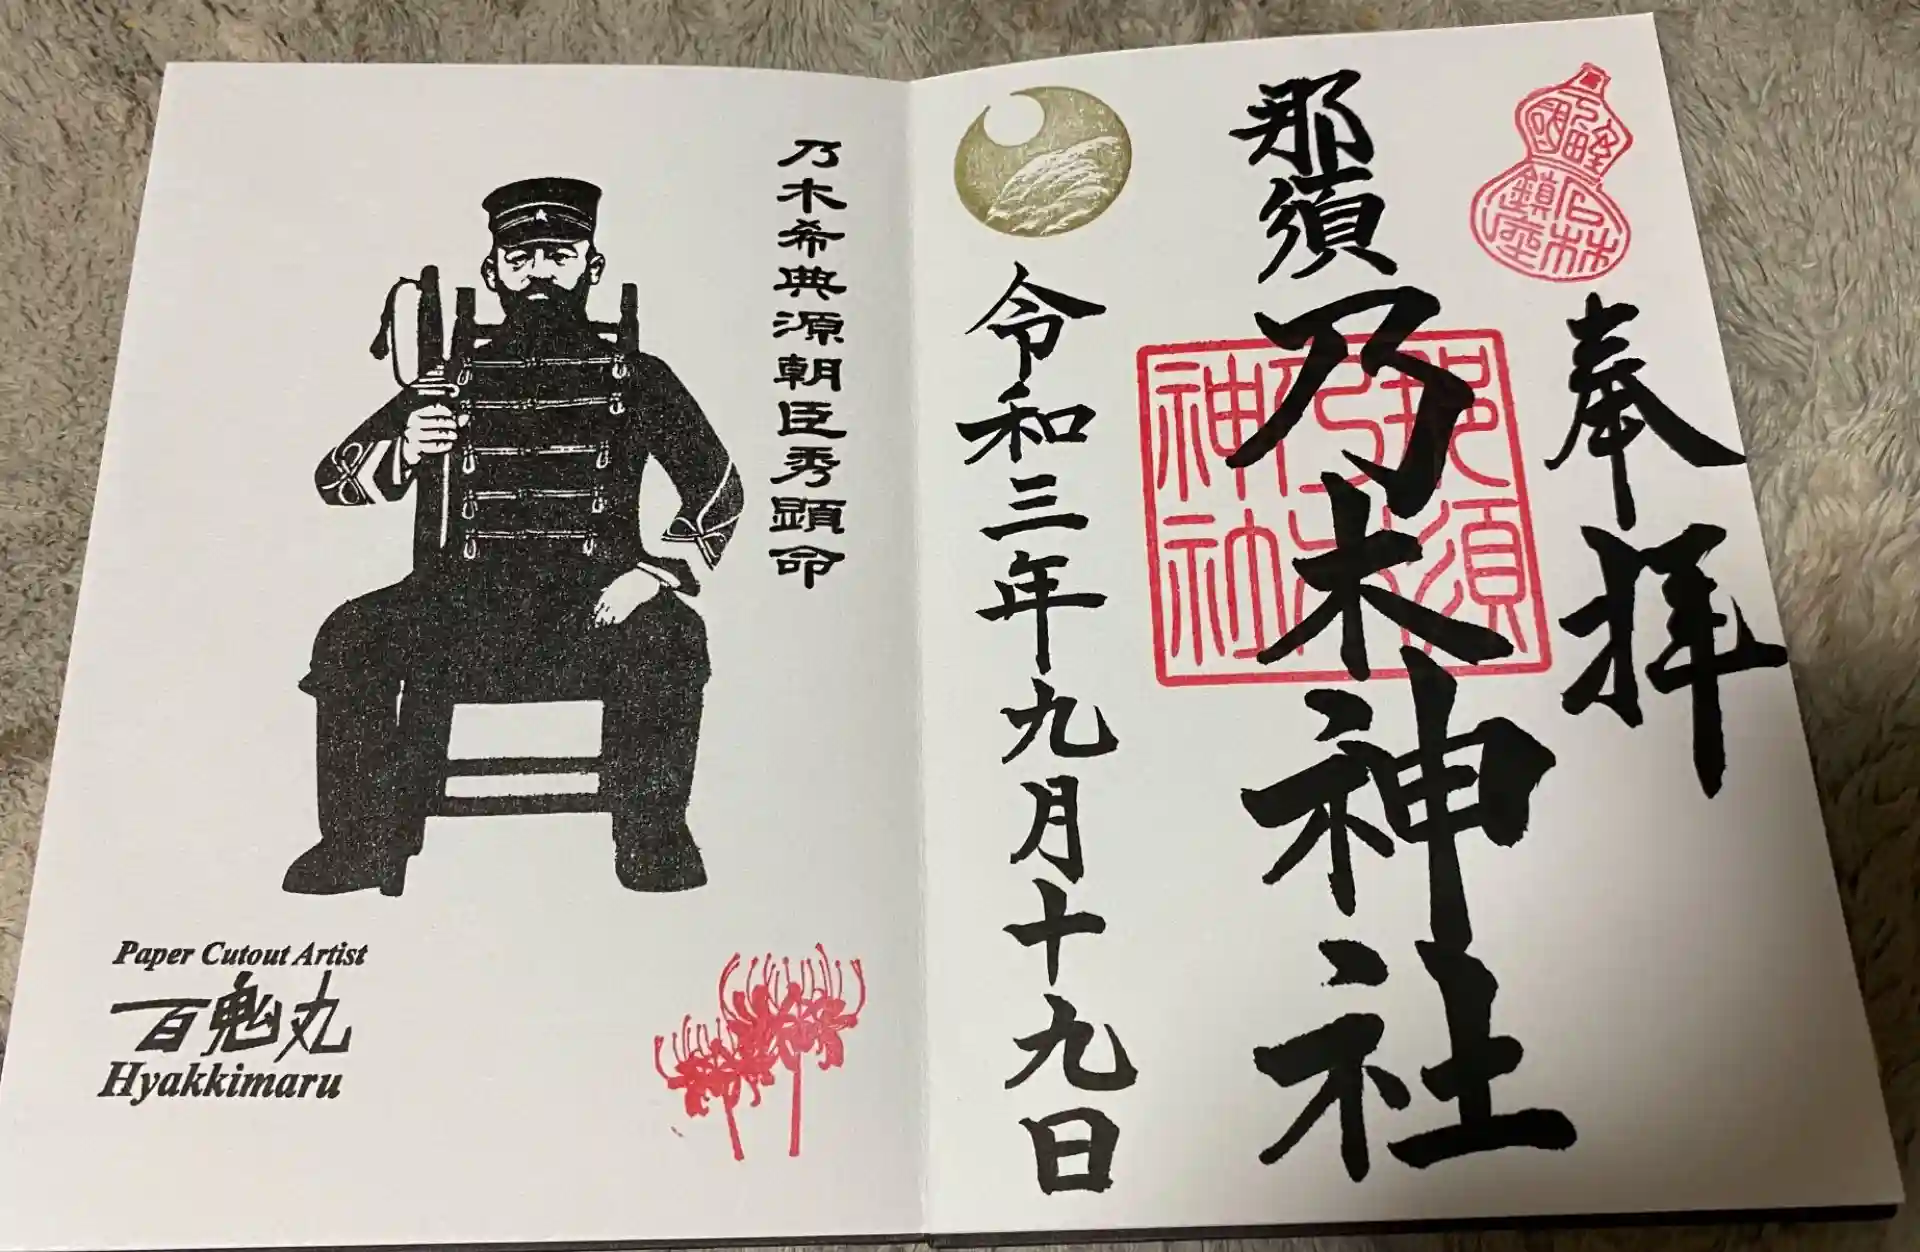 石林
鎮座
奉拝
那須乃木神社
那須
乃木
神社
令和三年九月十九日
乃木希典源朝臣秀顕命
Paper Cutout Artist
百鬼丸
Hyakkimaru